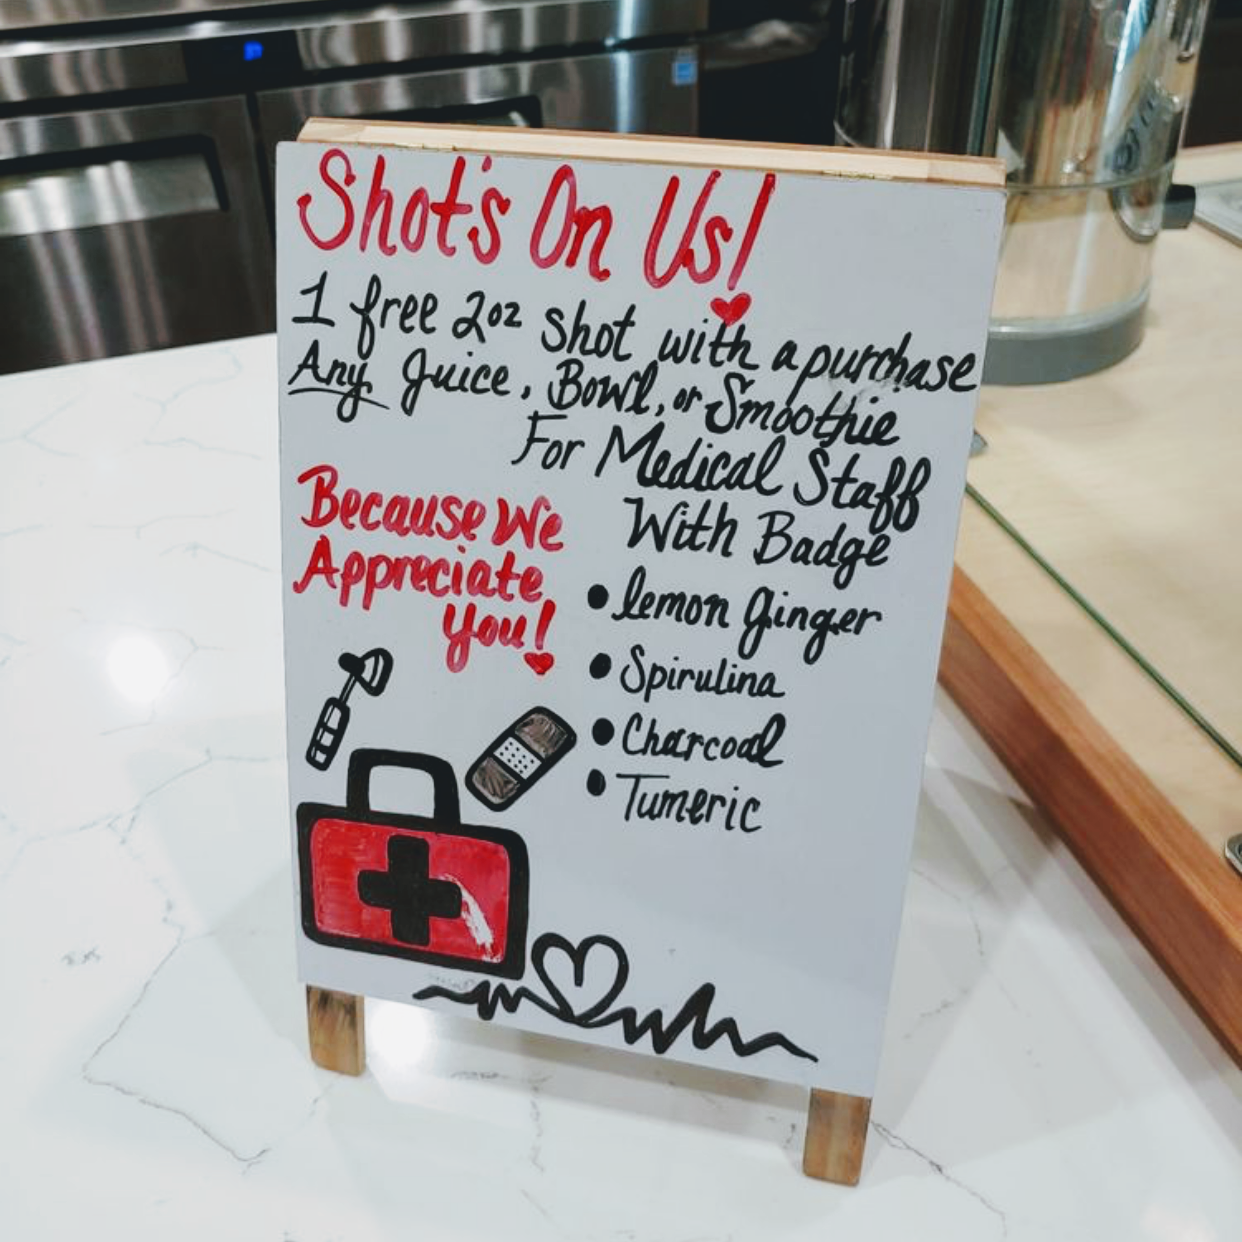 Shot's On Us!
1 free 2oz shot with a purchase
Any Juice, Bowl, or Smoothie
For Medical Staff
With Badge
Because We
Appreciate
You!
• lemon Ginger
• Spirulina
• Charcoal
• Tumeric